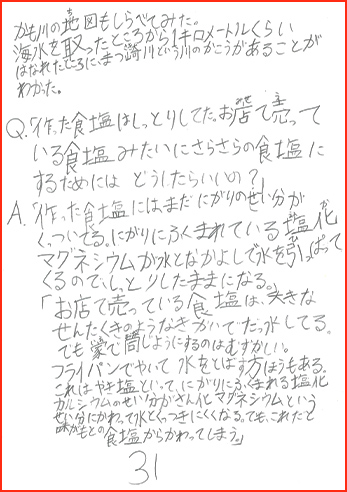 かも川の地図もしらべてみた。
海水を取ったところから1キロメートルくらい
はなれたところに、まつ崎川という川のかこうがあることが
わかった。
Q.「作った食塩はしっとりしてた。お店で売って
いる食塩みたいにさらさらの食塩に
するためには どうしたらいいの?
A.「作った食塩にはまだにがりのせい分が
くっついてる。にがりにふくまれている塩化
マグネシウムが水となかよしで水を引っぱって
くるのでしっとりしたままになる。
「お店で売っている食塩は、大きな
せんたくきのようなきかいでだっ水してる。
でも家で同じようにするのはむずかしい。
フライパンでやいて水をとばす方ほうもある。
これはやき塩といって、にがりにふくまれる塩化
カルシウムのせい分がさん化マグネシウムという
せい分にかわって水とくっつきにくくなる。でも、これだと
味がもとの食塩からかわってしまう」
31